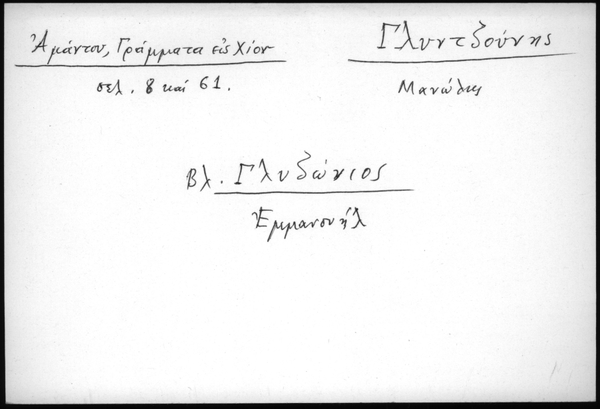 Ἀμάντου, Γράμματα εἰς Χίον
σελ. 8 καί 61.
Γλυντζούνης
Μανώλης
Βλ. Γλυζώνιος
Ἐμμανουήλ